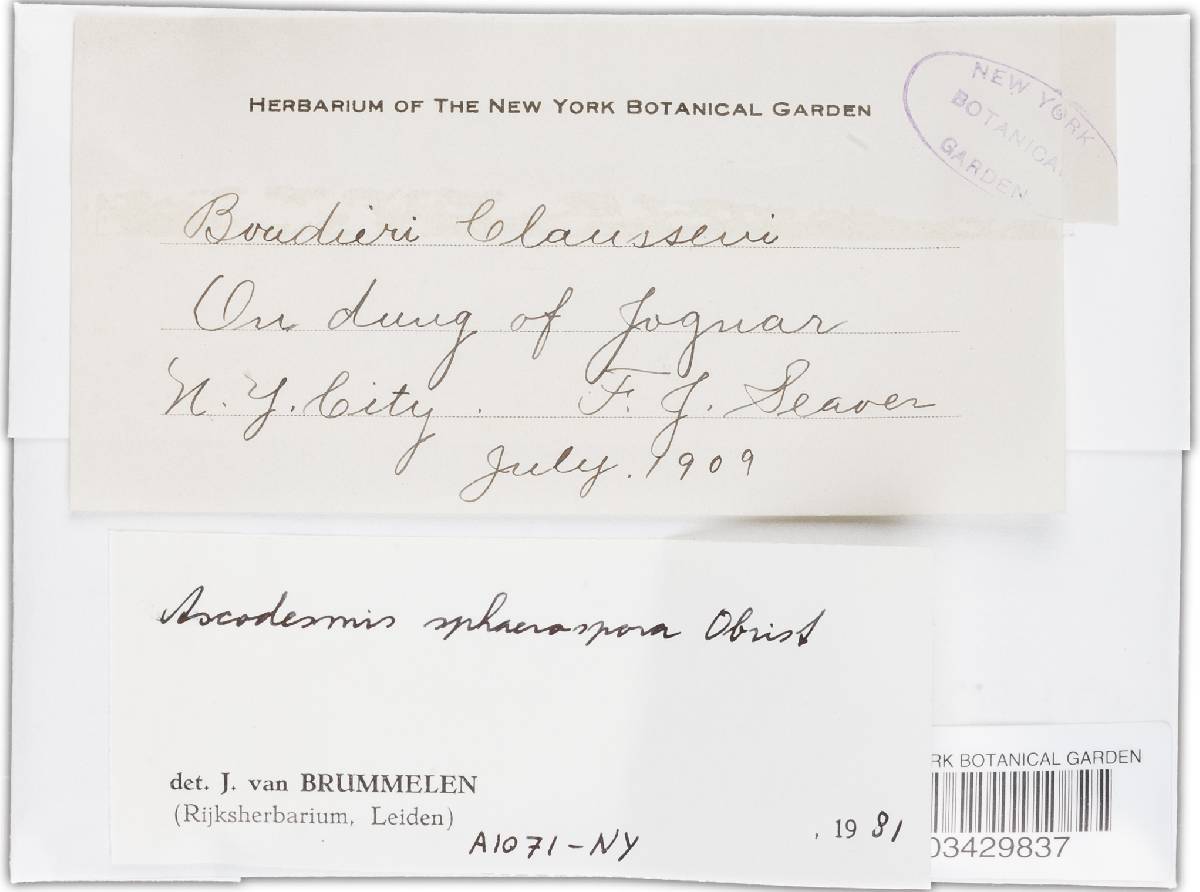 HERBARIUM OF THE NEW YORK BOTANICAL GARDEN
NEW YORK
BOTANICAL
GARDEN
Boudieri Clausseni
On dung of Joguar
N. Y. City. F. J. Seaver
July. 1909
Ascodesmis sphaerospora Obrist
det. J. van BRUMMELEN
(Rijksherbarium, Leiden)
, 1981
A1071-NY
RK BOTANICAL GARDEN
03429837